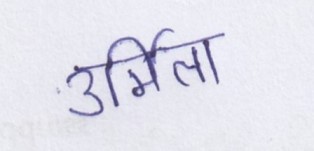 उर्मिला